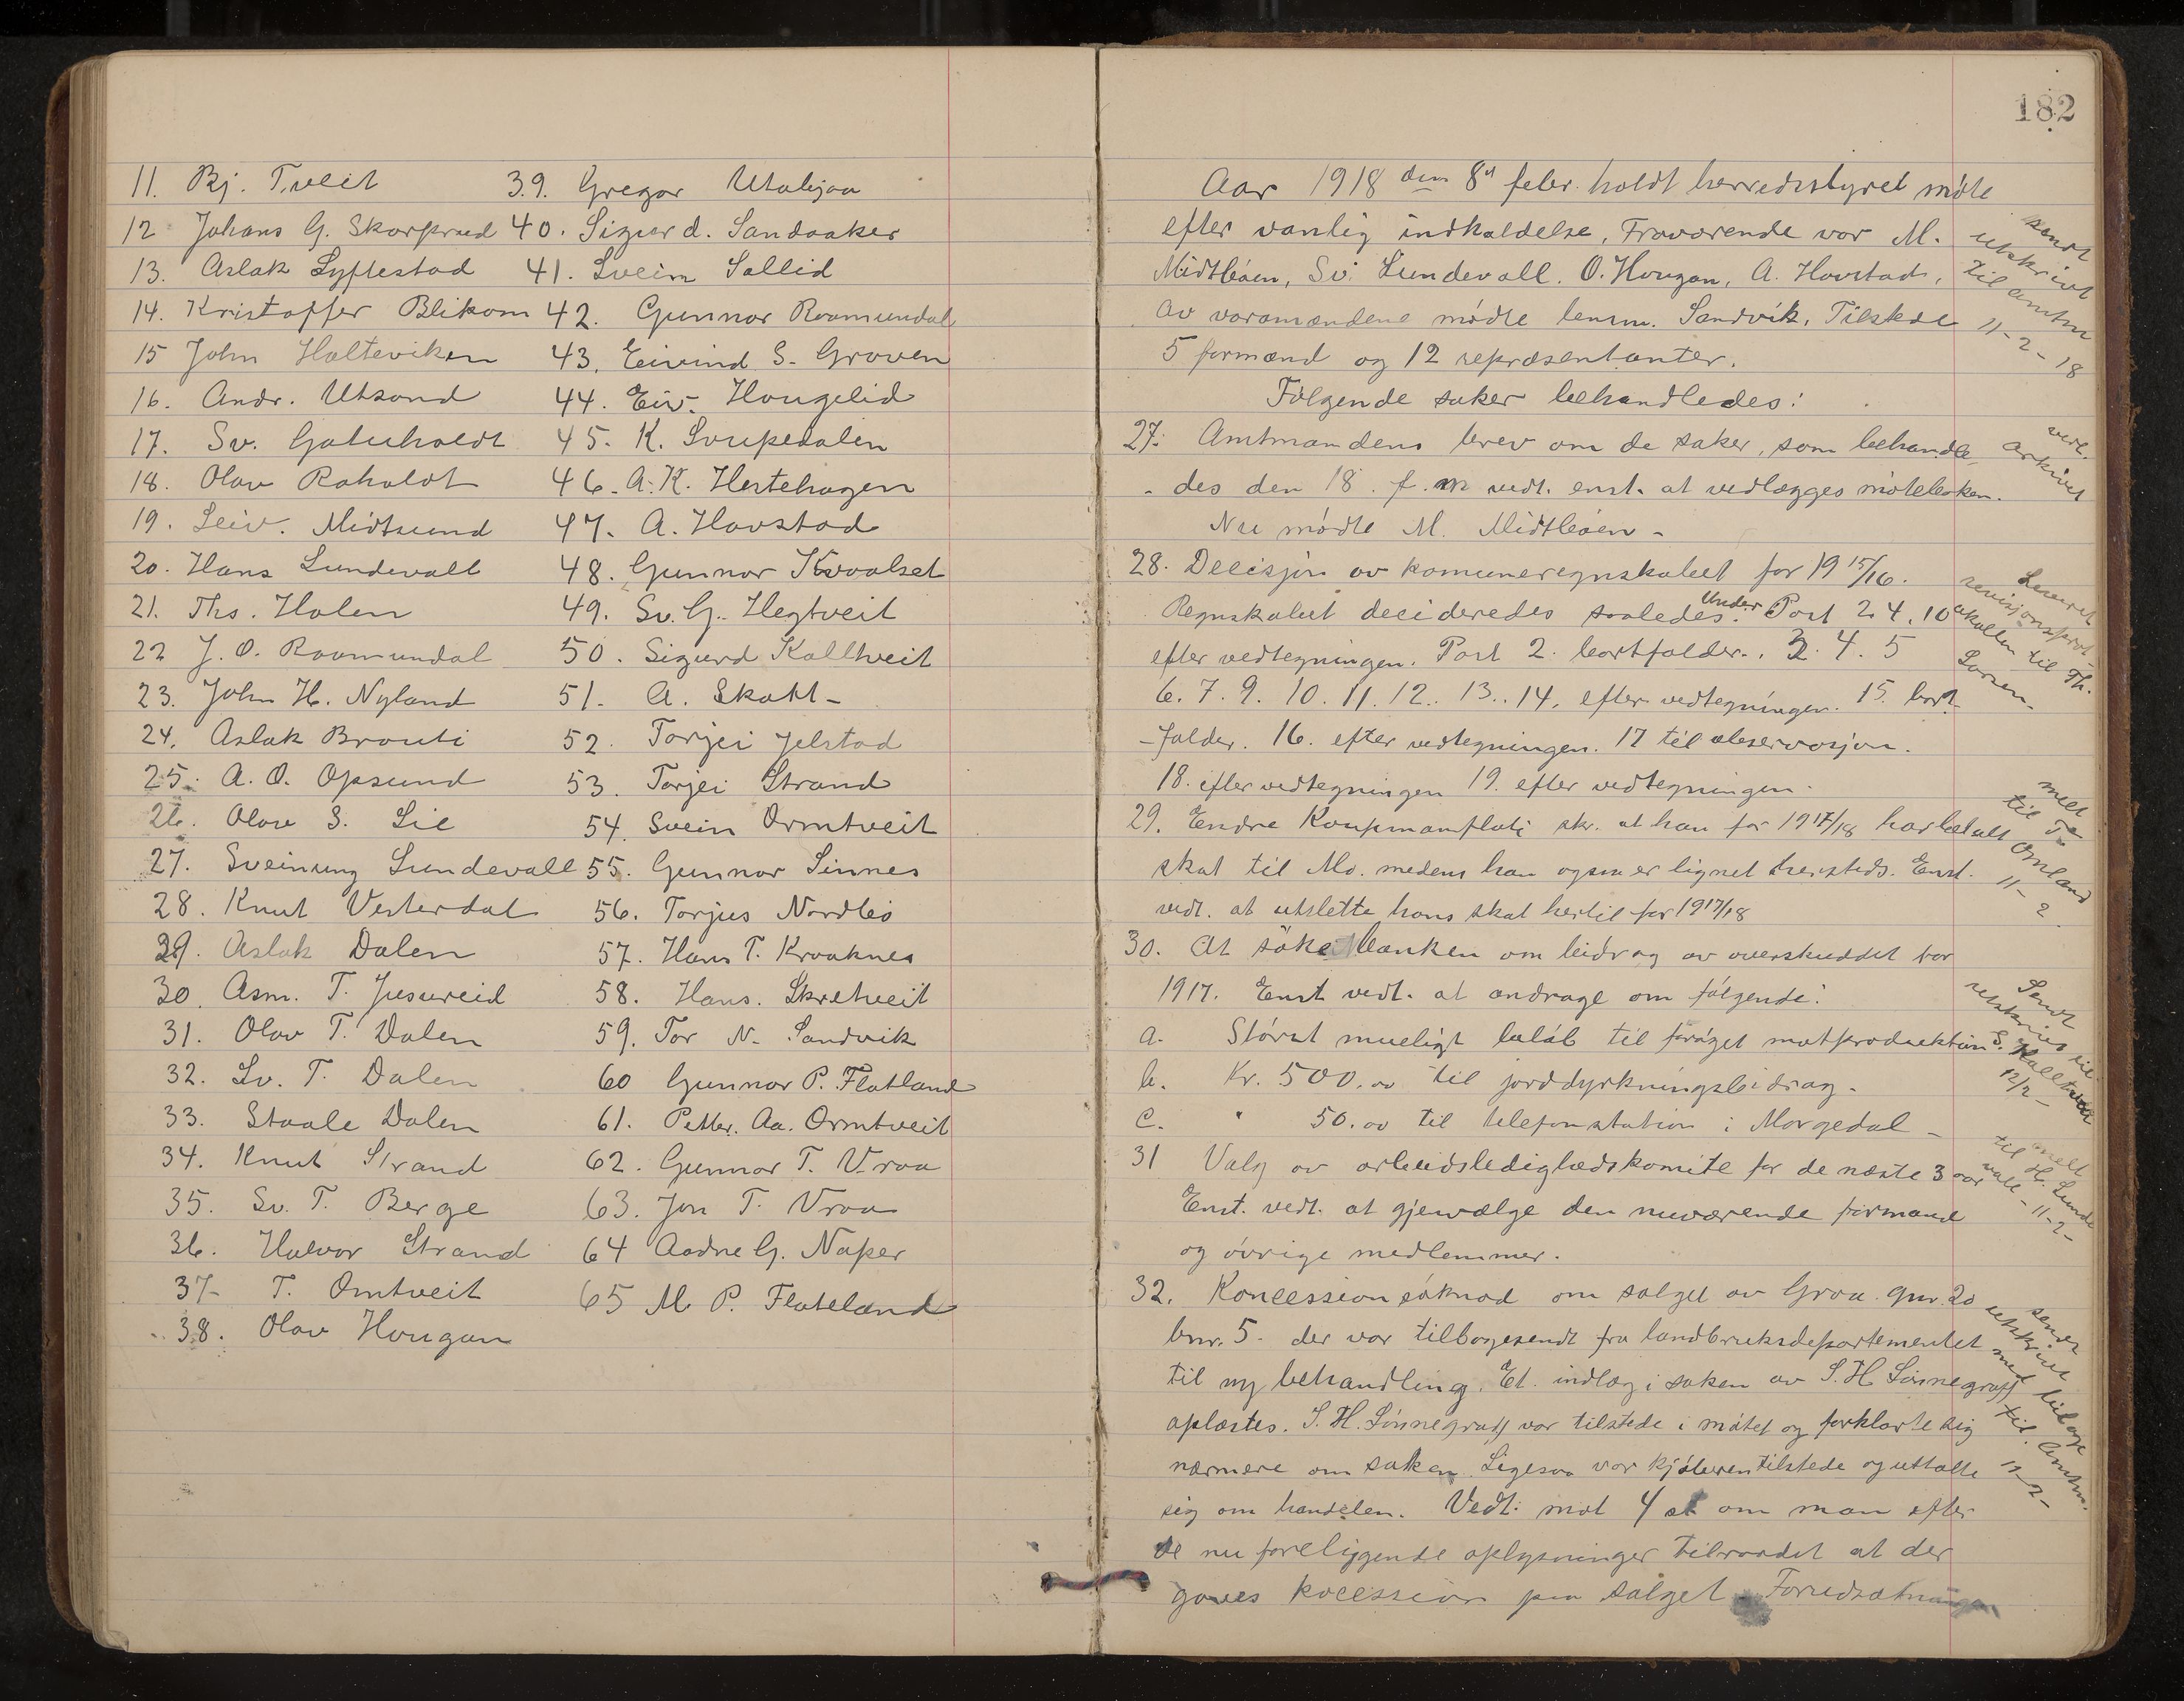 11. Bj. Tveit
12 Johans G. Skorprud
13. Aslak Lyftestad
14. Kristoffer Blikom
15 John Halteviken
16. Andr. Utsond
17. Sv. Gotuholdt
18. Olav Roholdt
19. Leiv. Midtsund
20. Hans Lundevall
21. Ths. Holen
22 J. O. Roamundal
23. John H. Nyland
24. Aslak Brauti
25. A. O. Opsund
26. Olav S. Lie
27. Sveinung Lundevall
28. Knut Vesterdal
29. Aslak Dalen
30. Asm. T. Jusureid
31. Olav T. Dalen
32. Sv. T. Dalen
33. Staale Dalen
34. Knut Strand
35. Sv. T. Berge
36. Halvor Strand
37- T. Omtveit
38. Olav Hougan
39. Gregar Utabjaa
40. Sigurd. Sandaaker
41. Svein Sallid
42. Gunnar Raamundal
43. Eivind S. Groven
44. Eiv. Hougelid
45. K. Svupedalen
46. A. K. Hestehagen
47. A. Hovstad
48. Gunnar Kvaalset
49. Sv. G. Hegtveit
50. Sigurd Kalltveit
51. A. Skatt-
52. Torjei Jelstad
53. Torjei Strand
54. Svein Ormtveit
55. Gunnar Sinnes
56. Torjus Nordbö
57. Hans T. Kraaknes
58. Hans. Skretveit
59. Tor N. Sandvik
60 Gunnar P. Flatland
61. Petter. Aa. Ormtveit
62. Gunnar T. Vraa
63. Jon T. Vraa
64 Aadne G. Naper
65 M. P. Flateland
182
Aar 1918 den 8de febr. holdt herredsstyret möte
efter vanlig indkaldelse. Fraværende var M.
Midtböen, Sv. Lundevall. O. Hougan, A. Hovstad.
Av varamændene mödte lensm. Sandvik. Tilstede
5 formænd og 12 repræsentanter.
sendt
utskrivt
til amtm
11-2-18
Fölgende saker behandledes:
27. Amtmandens brev om de saker, som behandle-
des den 18. f. m vedt. enst. at vedlægges möteboken.
vedl.
arkivet
Nu mödte M. Midtböen -
28. Decisjon av komuneregnskabet for 1915/16.
Regnskabet decideredes saaledes: Under Post 2 4. 10
efter vedtegningen. Post 2. bortfalder. 3. 4. 5
6. 7. 9. 10. 11. 12. 13. 14. efter vedtegningen. 15. bort-
-falder. 16. efter vedtegningen. 17 til observasjon.
18. efter vedtegningen 19. efter vedtegningen.
Leveret
revisjonsprot-
okollen til Th.
29. Endre Kaupmanflati skr. at han for 1917/18 har betalt
skat til Mo. medens han ogsaa er lignet hersteds. Enst.
vedt. at utslette hans skat hertil for 1917/18
melt
til T.
Omland
11-2
30. At söke banken om bidrag av overskuddet for
1917. Enst vedt. at andrage om fölgende:
a. Störst mueligt belöb til foröget matproduktion
b. Kr. 500.00 til jorddyrkningsbidrag.
c. " 50.00 til telefonstation i Morgedal -
Sendt
utskrivt til
S. Kalltveit
12/2-
31 Valg av arbeidsledighedskomite for de næste 3 aar
Enst. vedt. at gjenvælge den nuværende formand
og övrige medlemmer.
melt
til H. Lunde
vall - 11-2-
32. Koncessionsöknad om salget av Groa gnr. 20
bnr. 5. der var tilbagesendt fra landbruksdepartementet
til ny behandling. Et indlæg i saken av S. H. Sönnegraff
oplæstes. S. H. Sönnegraff var tilstede i mötet og forklarte sig
nærmere om saken. Ligesaa var kjöberen tilstede og uttalte
sig om handelen. Vedt. mot 4 st om man efter
de nu foreliggende oplysninger tilraadet at der
gaves kocession paa salget Forudsætningen
sendt
utskrivt
med bilage
til amtm.
12-2-